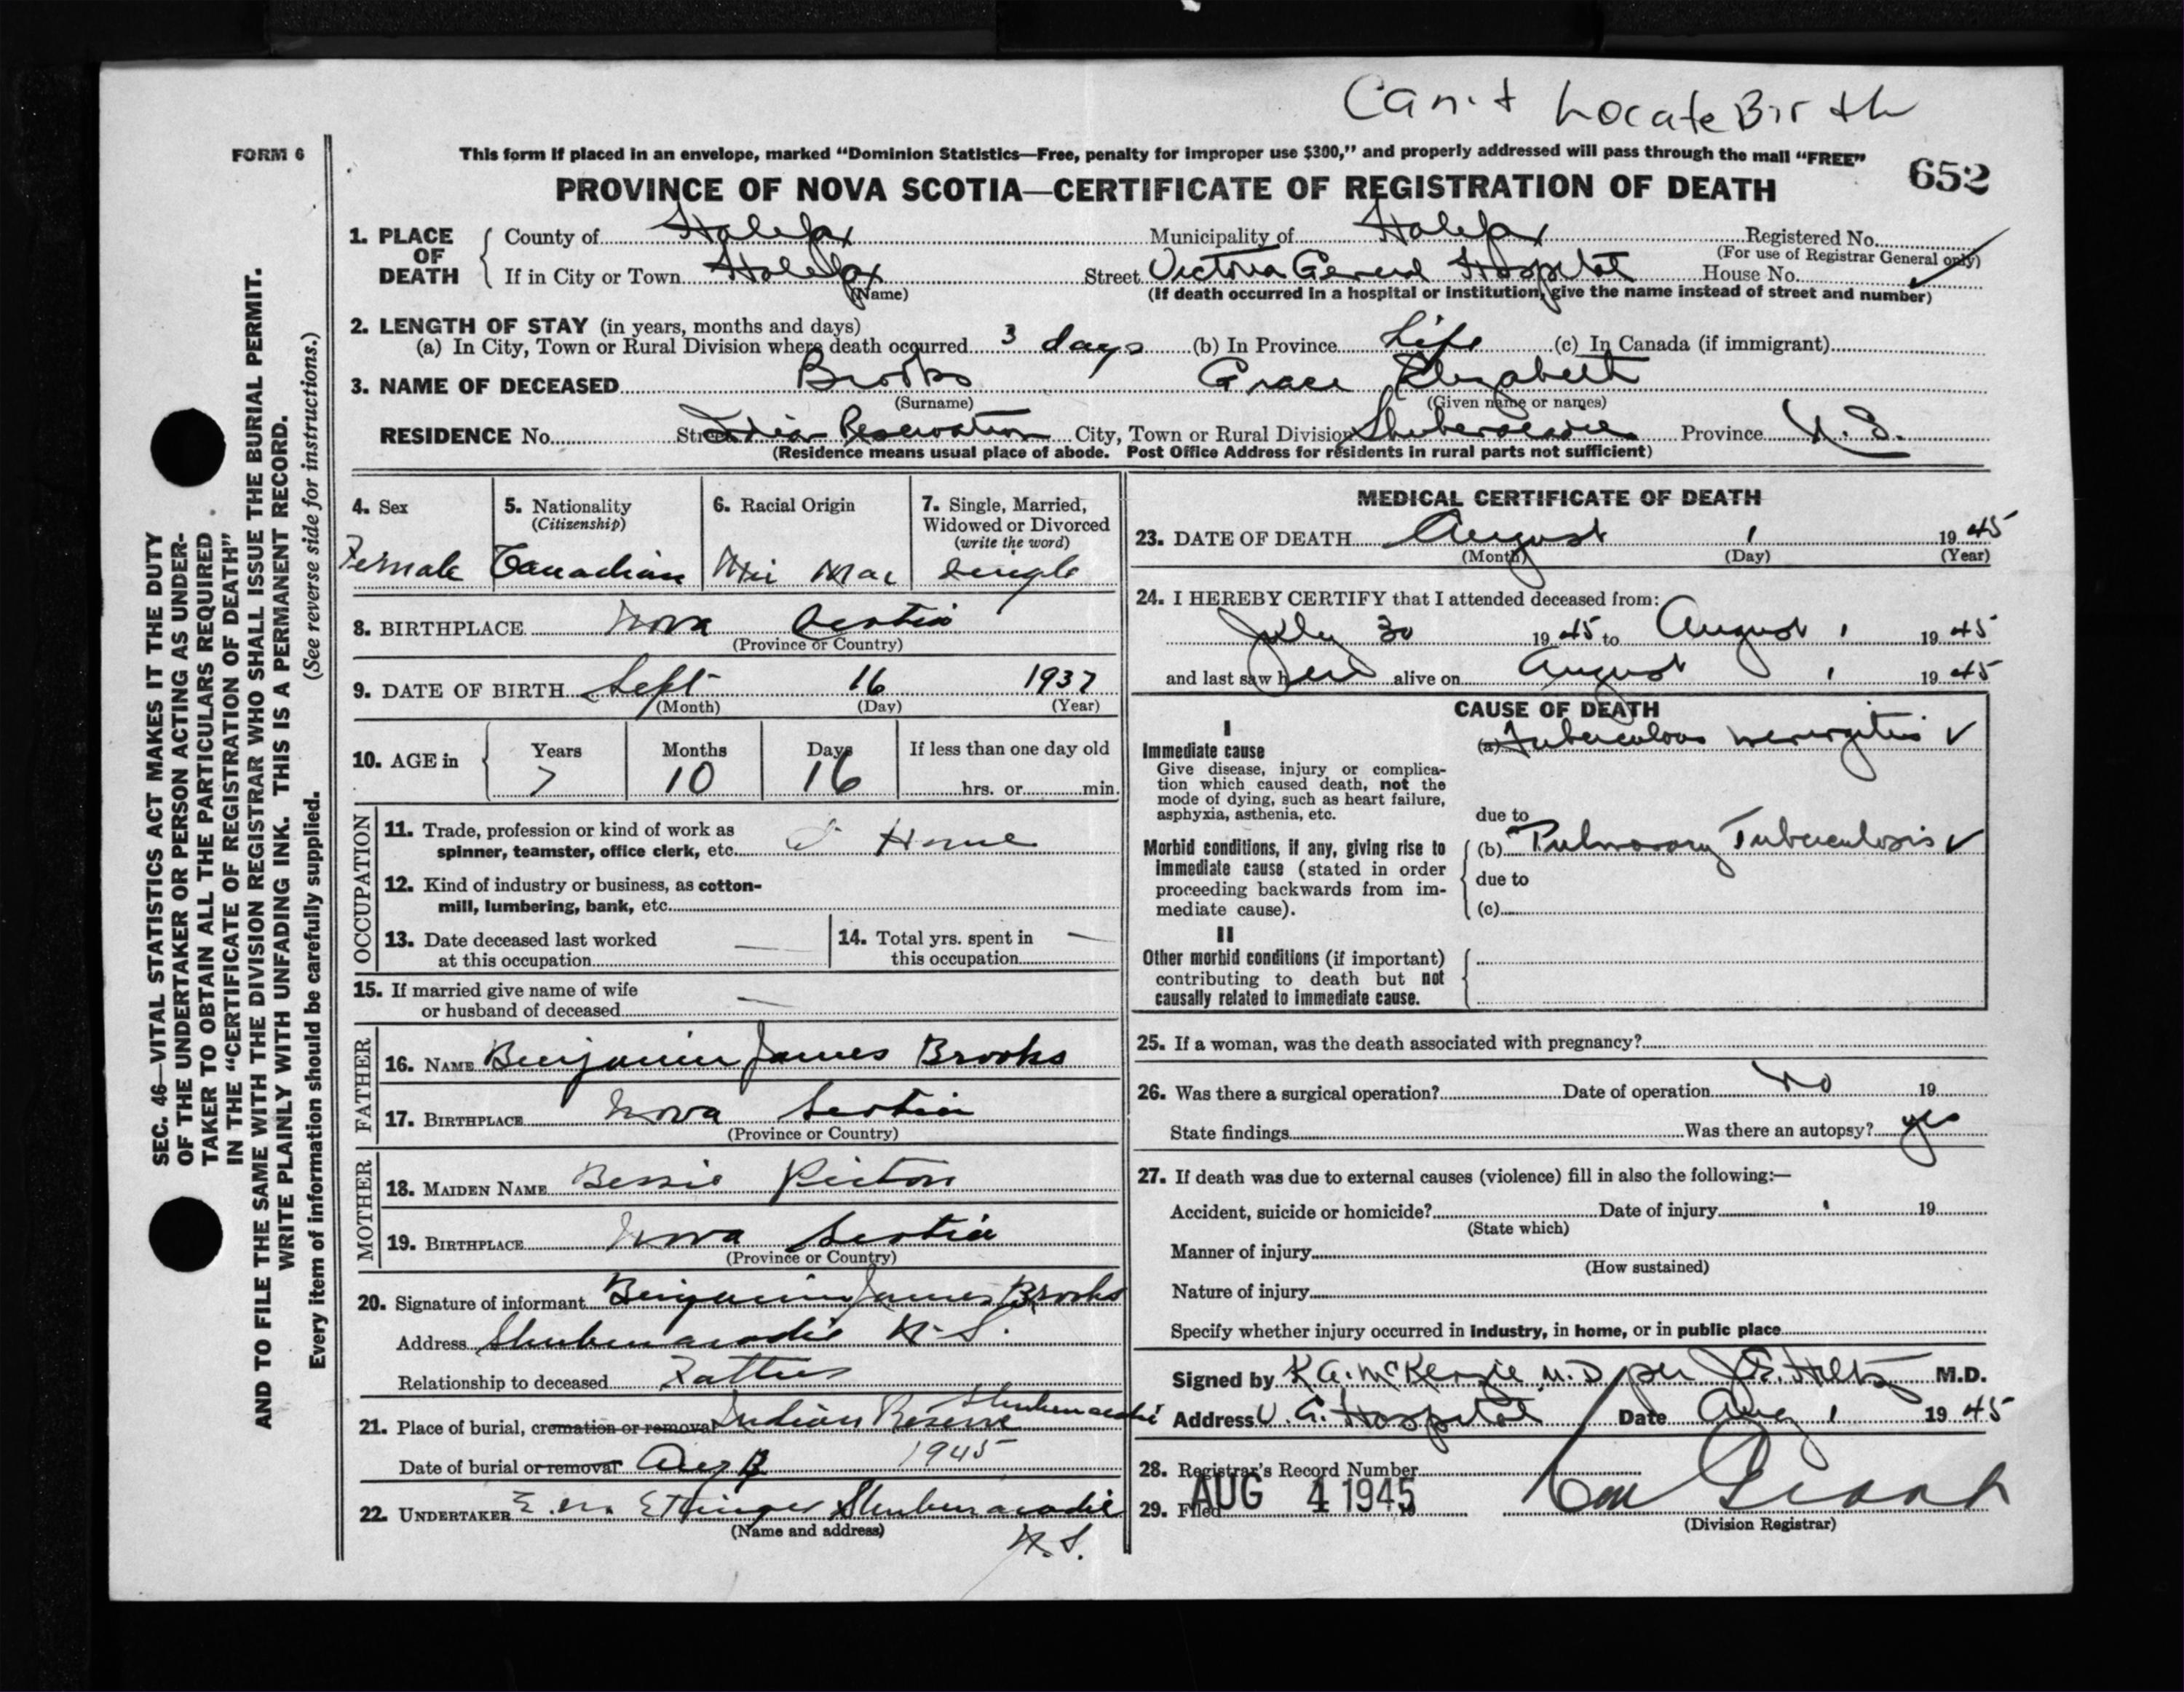 Can't Locate Birth
FORM 6
This form if placed in an envelope, marked "Dominion Statistics—Free, penalty for improper use $300," and properly addressed will pass through the mail "FREE"
652
PROVINCE OF NOVA SCOTIA—CERTIFICATE OF REGISTRATION OF DEATH
1. PLACE OF DEATH
County of Halifax Municipality of Halifax Registered No.
(For use of Registrar General only)
If in City or Town Halifax Street Victoria General Hospital House No.
(Name) (If death occurred in a hospital or institution, give the name instead of street and number)
2. LENGTH OF STAY (in years, months and days)
(a) In City, Town or Rural Division where death occurred 3 days (b) In Province Life (c) In Canada (if immigrant)
3. NAME OF DECEASED Brooks Grace Elizabeth
(Surname) (Given name or names)
RESIDENCE No. Street Indian Reservation City, Town or Rural Division Shubenacadie Province N.S.
(Residence means usual place of abode. Post Office Address for residents in rural parts not sufficient)
4. Sex Female
5. Nationality (Citizenship) Canadian
6. Racial Origin Mic Mac
7. Single, Married, Widowed or Divorced (write the word) single
8. BIRTHPLACE Nova Scotia
(Province or Country)
9. DATE OF BIRTH Sept 16 1937
(Month) (Day) (Year)
10. AGE in Years Months Days If less than one day old
7 10 16 hrs. or min.
OCCUPATION
11. Trade, profession or kind of work as
spinner, teamster, office clerk, etc. Home
12. Kind of industry or business, as cotton-
mill, lumbering, bank, etc.
13. Date deceased last worked
at this occupation —
14. Total yrs. spent in
this occupation —
15. If married give name of wife
or husband of deceased —
FATHER
16. NAME Benjamin James Brooks
17. BIRTHPLACE Nova Scotia
(Province or Country)
MOTHER
18. MAIDEN NAME Bessie Picton
19. BIRTHPLACE Nova Scotia
(Province or Country)
20. Signature of informant Benjamin James Brooks
Address Shubenacadie N.S.
Relationship to deceased Father
21. Place of burial, cremation or removal Indian Reserve Shubenacadie
Date of burial or removal Aug 1945
22. UNDERTAKER E. M. Ettinger Shubenacadie
(Name and address)
N.S.
MEDICAL CERTIFICATE OF DEATH
23. DATE OF DEATH August 1 1945
(Month) (Day) (Year)
24. I HEREBY CERTIFY that I attended deceased from:
July 30 1945 to August 1 1945
and last saw her alive on August 1 1945
CAUSE OF DEATH
I
Immediate cause
Give disease, injury or complica-
tion which caused death, not the
mode of dying, such as heart failure,
asphyxia, asthenia, etc.
(a) Tuberculous meningitis ✓
due to
Morbid conditions, if any, giving rise to
immediate cause (stated in order
proceeding backwards from im-
mediate cause).
(b) Pulmonary Tuberculosis ✓
due to
(c)
II
Other morbid conditions (if important)
contributing to death but not
causally related to immediate cause.
25. If a woman, was the death associated with pregnancy?
26. Was there a surgical operation? Date of operation No 19
State findings Was there an autopsy? yes
27. If death was due to external causes (violence) fill in also the following:—
Accident, suicide or homicide? Date of injury 19
(State which)
Manner of injury
(How sustained)
Nature of injury
Specify whether injury occurred in industry, in home, or in public place
Signed by K.A. McKenzie M.D per J.E. Hiltz M.D.
Address V.G. Hospital Date Aug 1 1945
28. Registrar's Record Number
29. Filed AUG 4 1945 19
(Division Registrar)
SEC. 46—VITAL STATISTICS ACT MAKES IT THE DUTY
OF THE UNDERTAKER OR PERSON ACTING AS UNDER-
TAKER TO OBTAIN ALL THE PARTICULARS REQUIRED
IN THE "CERTIFICATE OF REGISTRATION OF DEATH"
AND TO FILE THE SAME WITH THE DIVISION REGISTRAR WHO SHALL ISSUE THE BURIAL PERMIT.
WRITE PLAINLY WITH UNFADING INK. THIS IS A PERMANENT RECORD.
Every item of information should be carefully supplied. (See reverse side for instructions.)